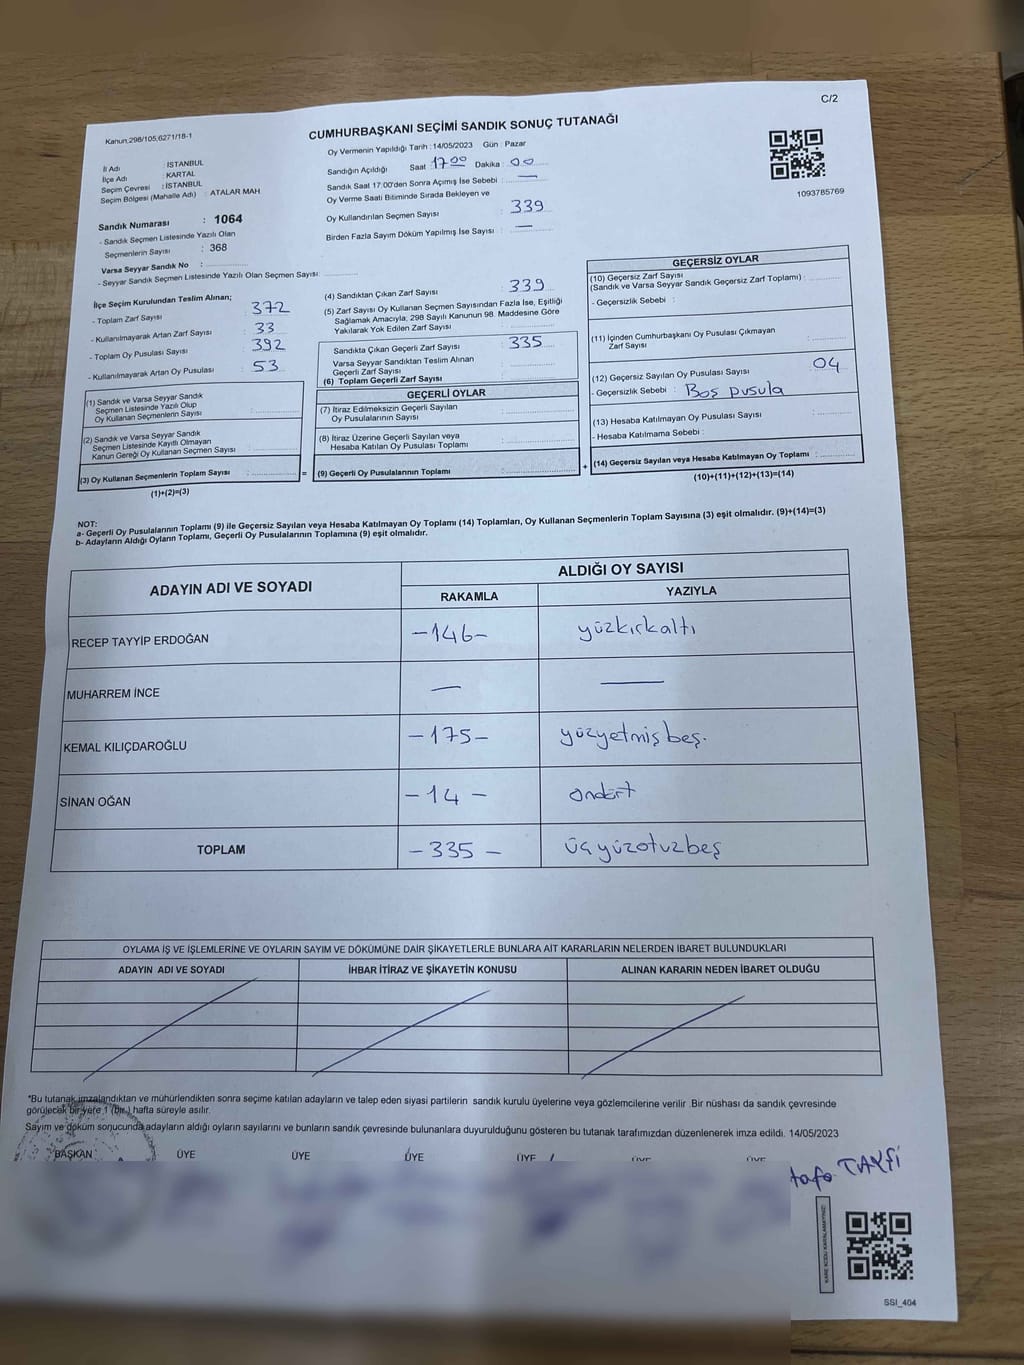 C/2
Kanun;298/105,6271/18-1
CUMHURBAŞKANI SEÇİMİ SANDIK SONUÇ TUTANAĞI
İl Adı : İSTANBUL
İlçe Adı : KARTAL
Seçim Çevresi : İSTANBUL
Seçim Bölgesi (Mahalle Adı) : ATALAR MAH.
Sandık Numarası : 1064
- Sandık Seçmen Listesinde Yazılı Olan
Seçmenlerin Sayısı : 368
Varsa Seyyar Sandık No :
- Seyyar Sandık Seçmen Listesinde Yazılı Olan Seçmen Sayısı:
Oy Vermenin Yapıldığı Tarih : 14/05/2023 Gün : Pazar
Sandığın Açıldığı Saat 17 00 Dakika : 00
Sandık Saat 17.00'den Sonra Açımış İse Sebebi : —
Oy Verme Saati Bitiminde Sırada Bekleyen ve
Oy Kullandırılan Seçmen Sayısı : 339
Birden Fazla Sayım Döküm Yapılmış İse Sayısı : —
1093785769
İlçe Seçim Kurulundan Teslim Alınan;
- Toplam Zarf Sayısı : 372
- Kullanılmayarak Artan Zarf Sayısı : 33
- Toplam Oy Pusulası Sayısı : 392
- Kullanılmayarak Artan Oy Pusulası : 53
(1) Sandık ve Varsa Seyyar Sandık
Seçmen Listesinde Yazılı Olup
Oy Kullanan Seçmenlerin Sayısı :
(2) Sandık ve Varsa Seyyar Sandık
Seçmen Listesinde Kayıtlı Olmayan
Kanun Gereği Oy Kullanan Seçmen Sayısı :
(3) Oy Kullanan Seçmenlerin Toplam Sayısı :
(1)+(2)=(3)
=
(4) Sandıktan Çıkan Zarf Sayısı : 339
(5) Zarf Sayısı Oy Kullanan Seçmen Sayısından Fazla İse, Eşitliği
Sağlamak Amacıyla, 298 Sayılı Kanunun 98. Maddesine Göre
Yakılarak Yok Edilen Zarf Sayısı :
Sandıkta Çıkan Geçerli Zarf Sayısı : 335
Varsa Seyyar Sandıktan Teslim Alınan
Geçerli Zarf Sayısı :
(6) Toplam Geçerli Zarf Sayısı :
GEÇERLİ OYLAR
(7) İtiraz Edilmeksizin Geçerli Sayılan
Oy Pusulalarının Sayısı :
(8) İtiraz Üzerine Geçerli Sayılan veya
Hesaba Katılan Oy Pusulası Toplamı :
(9) Geçerli Oy Pusulalarının Toplamı :
+
GEÇERSİZ OYLAR
(10) Geçersiz Zarf Sayısı
(Sandık ve Varsa Seyyar Sandık Geçersiz Zarf Toplamı) :
- Geçersizlik Sebebi :
(11) İçinden Cumhurbaşkanı Oy Pusulası Çıkmayan
Zarf Sayısı :
(12) Geçersiz Sayılan Oy Pusulası Sayısı : 04
- Geçersizlik Sebebi : Boş pusula
(13) Hesaba Katılmayan Oy Pusulası Sayısı :
- Hesaba Katılmama Sebebi :
(14) Geçersiz Sayılan veya Hesaba Katılmayan Oy Toplamı :
(10)+(11)+(12)+(13)=(14)
NOT:
a- Geçerli Oy Pusulalarının Toplamı (9) ile Geçersiz Sayılan veya Hesaba Katılmayan Oy Toplamı (14) Toplamları, Oy Kullanan Seçmenlerin Toplam Sayısına (3) eşit olmalıdır. (9)+(14)=(3)
b- Adayların Aldığı Oyların Toplamı, Geçerli Oy Pusulalarının Toplamına (9) eşit olmalıdır.
ADAYIN ADI VE SOYADI ALDIĞI OY SAYISI
RAKAMLA YAZIYLA
RECEP TAYYİP ERDOĞAN -146- yüzkırkaltı
MUHARREM İNCE — —
KEMAL KILIÇDAROĞLU -175- yüzyetmişbeş.
SİNAN OĞAN -14- ondört
TOPLAM -335- üçyüzotuzbeş
OYLAMA İŞ VE İŞLEMLERİNE VE OYLARIN SAYIM VE DÖKÜMÜNE DAİR ŞİKAYETLERLE BUNLARA AİT KARARLARIN NELERDEN İBARET BULUNDUKLARI
ADAYIN ADI VE SOYADI İHBAR İTİRAZ VE ŞİKAYETİN KONUSU ALINAN KARARIN NEDEN İBARET OLDUĞU
*Bu tutanak imzalandıktan ve mühürlendikten sonra seçime katılan adayların ve talep eden siyasi partilerin sandık kurulu üyelerine veya gözlemcilerine verilir .Bir nüshası da sandık çevresinde
görülecek bir yere 1 (bir ) hafta süreyle asılır.
Sayım ve döküm sonucunda adayların aldığı oyların sayılarını ve bunların sandık çevresinde bulunanlara duyurulduğunu gösteren bu tutanak tarafımızdan düzenlenerek imza edildi. 14/05/2023
BAŞKAN ÜYE ÜYE ÜYE ÜYE ÜYE ÜYE
tafa TAYFİ
KARE KODU KARALAMAYINIZ!
SSI_404